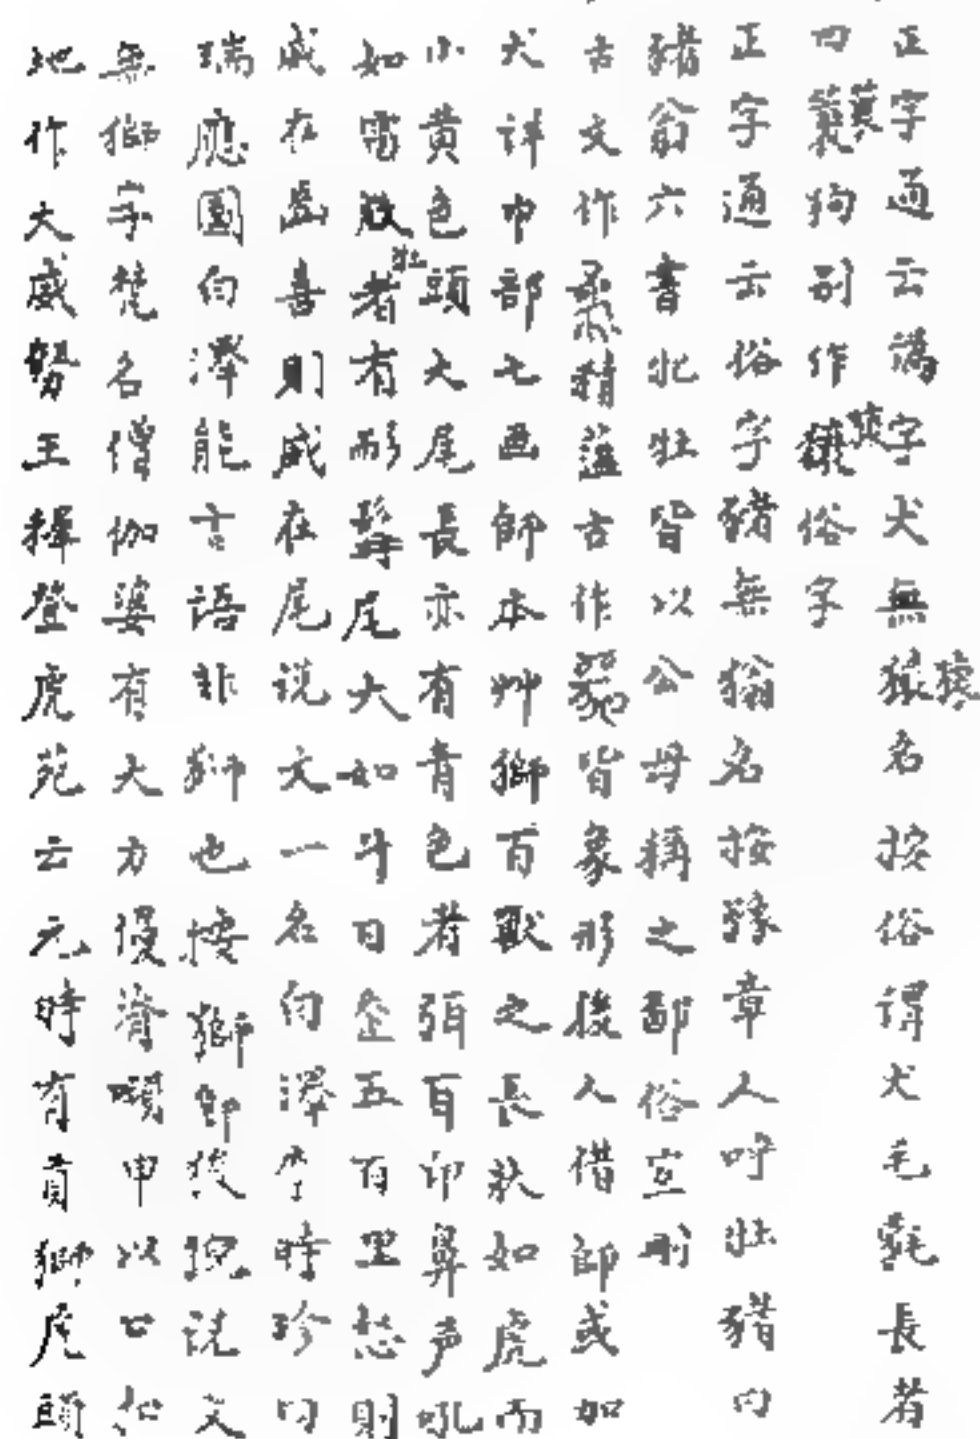 正字通云譌字犬無猿名按俗謂犬毛氄長者
曰蓑狗别作俗字
正字通云俗字豬無豱名按豫章人呼牡豬曰
豬翁六書牝牡皆以公母稱之鄙俗宜刪
古文作古作皆象形後人借師或加
犬詳巾部七画師本艸獅百獸之長狀如虎而
小黄色頭大尾長亦有青色者弭耳昂鼻声吼
如雷牡者有耏髯尾大如斗日走五百里怒則
威在齒喜則威在尾説文一名白澤李時珍曰
瑞應圖白澤能言語非獅也按獅即狻猊説文
無獅字梵名僧伽婆有大力優脊甲以口
地作大威勢王擇登虎苑云元時有貢獅虎頭